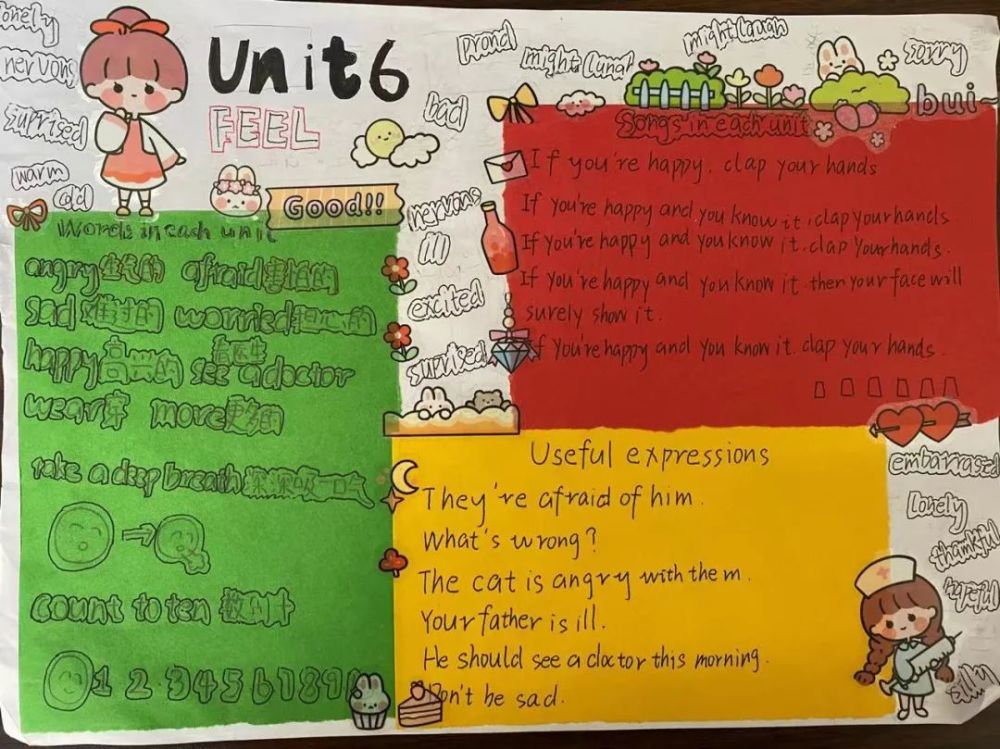 lonely
nervons
suprised
warm
old
Unit6
FEEL
Good!!
bad
prond
might laugh
sorry
bui
nervons
ill
excited
suprised
Words in each unit
angry生气的 afraid害怕的
sad难过的 worried担心的
happy高兴的 see a doctor看医生
wear穿 more更多的
take a deep breath深深吸一口气
count to ten 数到十
1 2 3 4 5 6 7 8 9
Songs in each unit
If you're happy. clap your hands
If you're happy and you know it, clap your hands.
If you're happy and you know it. clap your hands.
If you're happy and you know it. then your face will
surely show it.
If you're happy and you know it. clap your hands.
Useful expressions
They're afraid of him.
What's wrong?
The cat is angry with them.
Your father is ill.
He should see a doctor this morning.
Don't be sad.
Lonely
thankful
silly